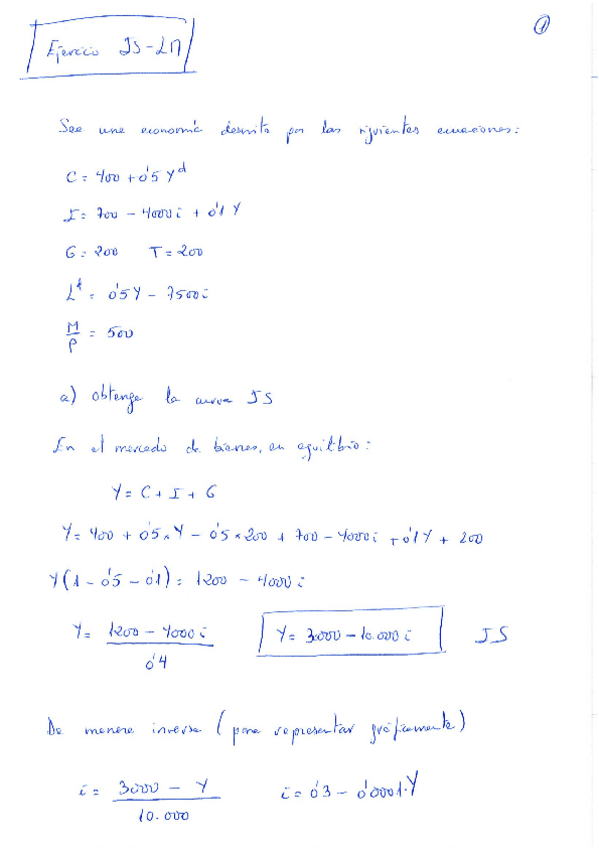 1
Ejercicio IS-LM
Sea una economía descrita por las siguientes ecuaciones:
C = 400 + 0'5 Y^d
I = 700 - 4000 i + 0'1 Y
G = 200 T = 200
L^d = 0'5 Y - 7500 i
M/P = 500
a) obtenga la curva IS
En el mercado de bienes, en equilibrio:
Y = C + I + G
Y = 400 + 0'5 x Y - 0'5 x 200 + 700 - 4000 i + 0'1 Y + 200
Y (1 - 0'5 - 0'1) = 1200 - 4000 i
Y = 1200 - 4000 i / 0'4 Y = 3.000 - 10.000 i IS
De manera inversa (para representar gráficamente)
i = 3000 - Y / 10.000 i = 0'3 - 0'0001·Y